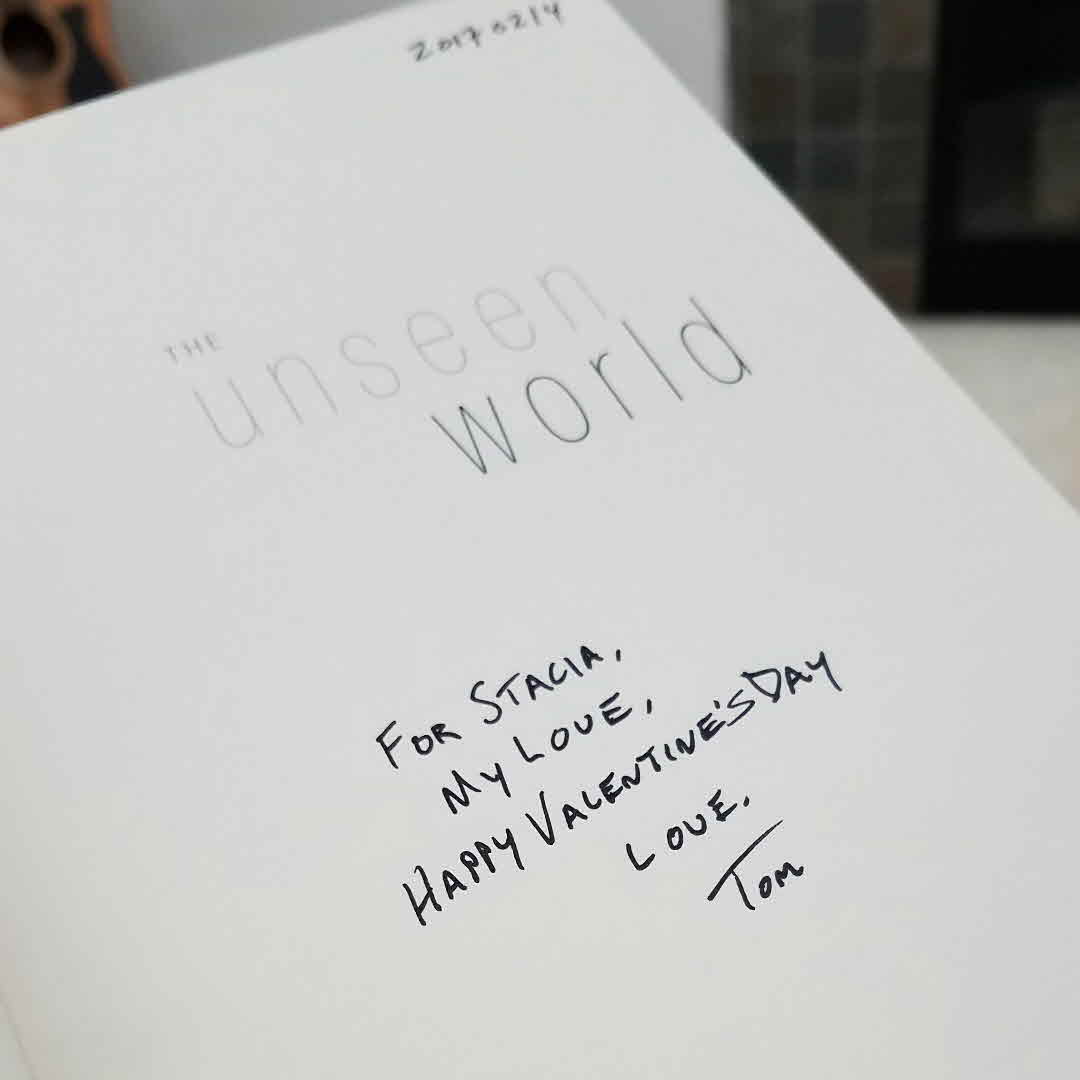 20170214
THE
unseen
world
FOR STACIA,
MY LOVE,
HAPPY VALENTINE'S DAY
LOVE,
TOM